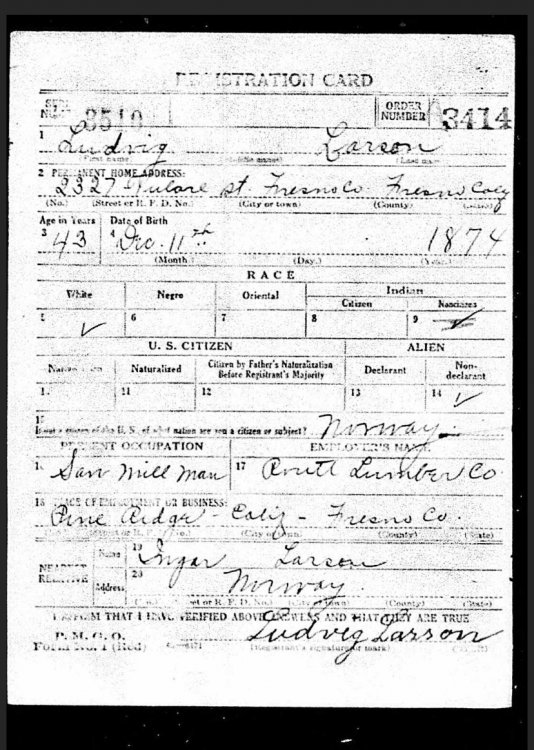 REGISTRATION CARD
SERIAL NUMBER 3510 ORDER NUMBER A 3414
1 Ludvig Larson
(First name) (Middle name) (Last name)
2 PERMANENT HOME ADDRESS:
2327 Tulare St. Fresno Co. Fresno Calif
(No.) (Street or R. F. D. No.) (City or town) (County) (State)
Age in Years Date of Birth
3 43 4 Dec. 11th 1874
(Month) (Day.) (Year.)
RACE
White Negro Oriental Indian
Citizen Noncitizen
5 6 7 8 9
U. S. CITIZEN ALIEN
Native Born Naturalized Citizen by Father's Naturalization Before Registrant's Majority Declarant Non-declarant
11 12 13 14
15
If not a citizen of the U. S. of what nation are you a citizen or subject? Norway
PRESENT OCCUPATION EMPLOYER'S NAME
16 Saw mill man 17 Routt Lumber Co
18 PLACE OF EMPLOYMENT OR BUSINESS:
Pine Ridge - Calif - Fresno Co.
(No.) (Street or R. F. D. No.) (City or town) (County) (State)
NEAREST RELATIVE
Name 19 Ingar Larson
Address 20 Norway
(No.) (Street or R. F. D. No.) (City or town) (County) (State)
I AFFIRM THAT I HAVE VERIFIED ABOVE ANSWERS AND THAT THEY ARE TRUE
P. M. G. O.
Form No. 1 (Red) Ludvig Larson
(Registrant's signature or mark)